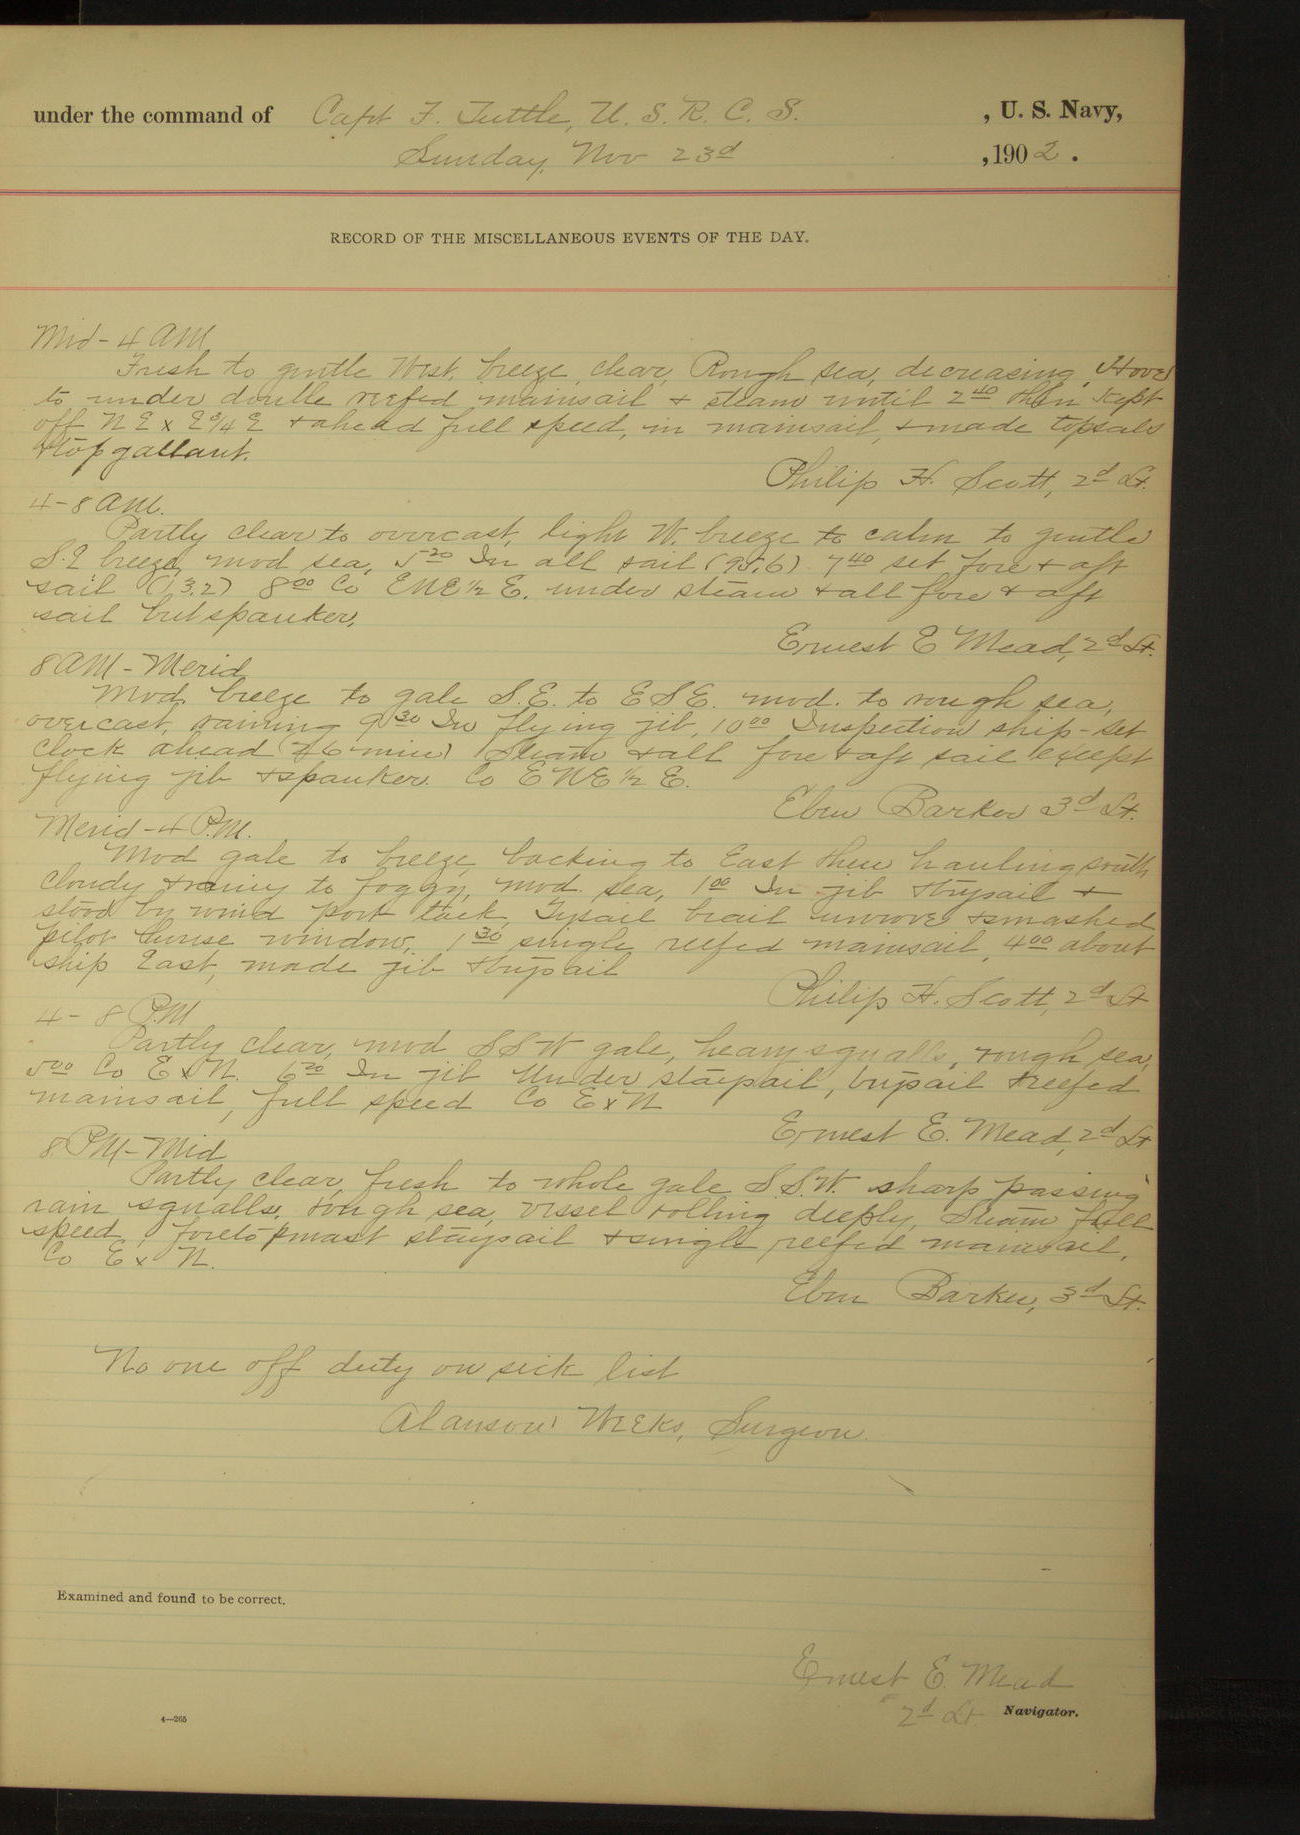 under the command of Capt F. Tuttle, U. S. R. C. S. , U. S. Navy,
Sunday, Nov 23d , 1902.
RECORD OF THE MISCELLANEOUS EVENTS OF THE DAY.
Mid - 4 AM
Fresh to gentle West. breeze, clear, Rough sea, decreasing. Hove
to under double reefed mainsail + steam until 2 40 then kept
off N E x E 3/4 E + ahead full speed, in mainsail, + made topsails
+ topgallant.
Philip H. Scott, 2d Lt.
4 - 8 AM.
Partly clear to overcast, light W. breeze to calm to gentle
S.E breeze, mod sea, 5 20 In all sail (95.6) 7 40 set fore + aft
sail (13.2) 8 00 Co ENE 1/2 E. under steam + all fore + aft
sail but spanker.
Ernest E Mead, 2d Lt.
8 AM - Merid
Mod. breeze to gale S.E. to E S E. mod. to rough sea,
overcast, raining 9 30 In flying jib, 10 00 Inspection ship - set
clock ahead (26 min) Steam + all fore + aft sail except
flying jib + spanker. Co ENE 1/2 E.
Eben Barker 3d Lt.
Merid - 4 P.M.
Mod gale to breeze, backing to East then hauling south
cloudy + rainy to foggy, mod. sea, 1 00 In jib + trysail +
stood by wind port tack, Trysail brail unrove + smashed
pilot house window. 1 30 single reefed mainsail, 4 00 about
ship East, made jib + trysail
Philip H. Scott, 2d Lt
4 - 8 P.M
Partly clear, mod SSW gale, heavy squalls, rough sea,
5 00 Co E x N. 6 20 In jib Under staysail, trysail + reefed
mainsail, full speed Co E x N
Ernest E. Mead, 2d Lt
8 PM - Mid
Partly clear, fresh to whole gale S.S.W. sharp passing
rain squalls, rough sea, vessel rolling deeply, Steam full
speed, foretopmast staysail + single reefed mainsail,
Co E x N.
Eben Barker, 3d Lt.
No one off duty on sick list
Alanson Weeks, Surgeon.
Examined and found to be correct.
Ernest E. Mead
2d Lt Navigator.
4—265